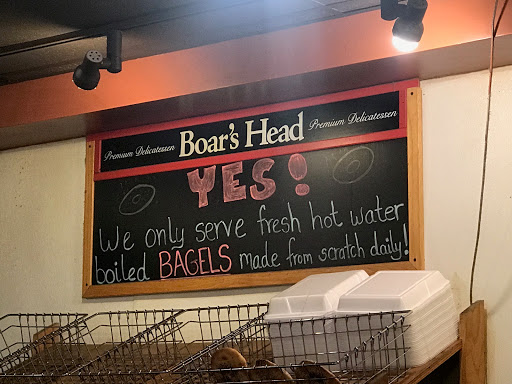 Premium Delicatessen Boar's Head Premium Delicatessen
YES!
We only serve fresh hot water
boiled BAGELS made from scratch daily!